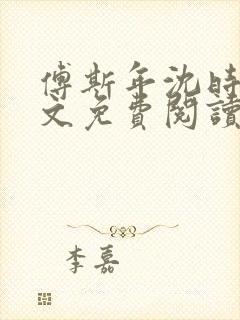 傅斯年沈時
文免費閱讀
李嘉